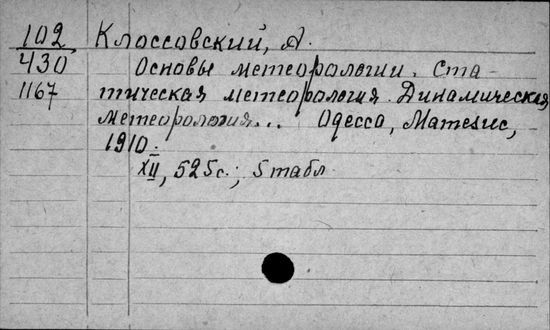 102 Клоссовский, А.
430 Основы метеорологии. Ста-
1167 тическая метеорология. Динамическая
метеорология... Одесса, Матезис,
1910.
XII, 525с.; 5 табл